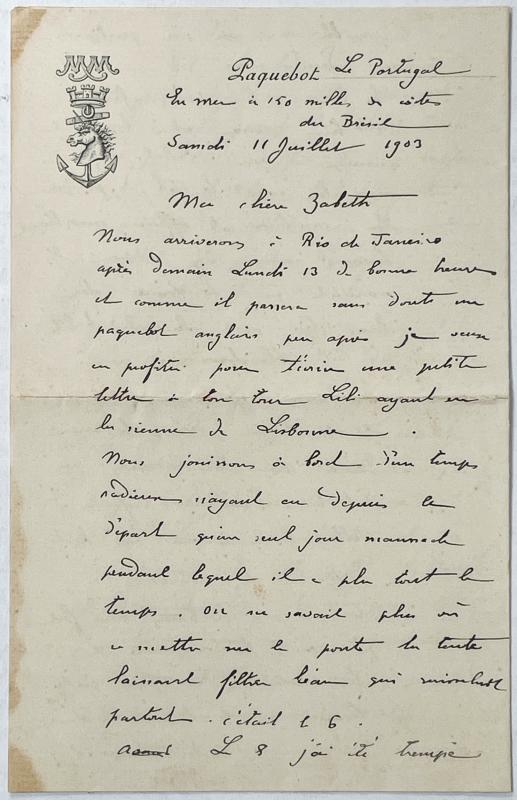 MM
Paquebot Le Portugal
En mer à 150 milles des côtes
du Brésil
Samedi 11 Juillet 1903
Ma chère Zabeth
Nous arriverons à Rio de Janeiro
après demain Lundi 13 de bonne heure
et comme il passera sans doute un
paquebot anglais peu après je veux
en profiter pour t'écrire une petite
lettre à ton tour Lili ayant eu
la sienne de Lisbonne.
Nous jouissons à bord d'un temps
radieux n'ayant eu depuis le
départ qu'un seul jour maussade
pendant lequel il a plu tout le
temps. On ne savait plus où
se mettre sur le pont la tente
laissant filtrer l'eau qui
partout. c'était le 6.
Le 8 j'ai été trempé